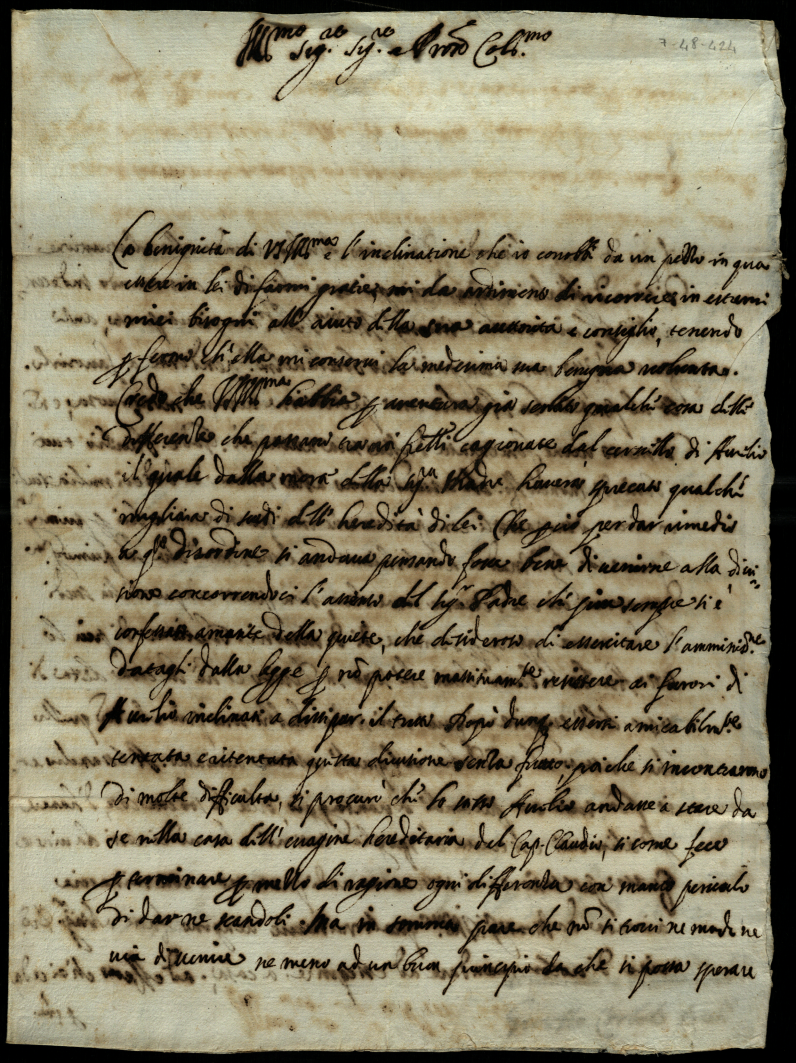 Ill.mo Sig.re Sig.re e Pron Col.mo
7-48-424
La benignità di VS Ill.ma e l'inclinatione che io conobbi da un pezzo in qua
essere in lei di farmi gratie, mi da ardimento di ricorrere in estremi
miei bisogni all' aiuto della sua auttorità e consiglio, tenendo
p fermo ch'ella mi conservi la medesima sua benigna volunta.
Credo che VS Ill.ma habbia p aventura già sentito qualche cosa delle
differenze che passano tra noi frelli cagionate dal cervello di Aurelio
il quale dalla morte della Sig.ra Madre haverà sprecato qualche
migliaia di scudi dell' heredità di lei. Che perciò per dar rimedio
a q.to disordine si andava pensando fosse bene di venirne alla divi-
sione concorrendoci l'assenso del Sig.r Padre che sempre si è
confessato amante della quiete, che desideroso di essercitare l'amminis.ne
datagli dalla legge p nō potere massimam.te resistere ai furori di
Aurelio inclinati a dissipar il tutto. Dopò dunq essersi amicabilm.te
tentata e ritentata questa divisione senza frutto, poiche si incontrarono
di molte difficultà, si procurò che lo stesso Aurelio andasse a stare da
se nella casa dell' heredità del Cap. Claudio, si come fece
p terminare p mezzo di ragione ogni differenza con manco pericolo
di dar ne scandoli. Ma in somma pare che nō si trovi ne modo ne
via di venire ne meno ad un buon principio da che si possa sperare